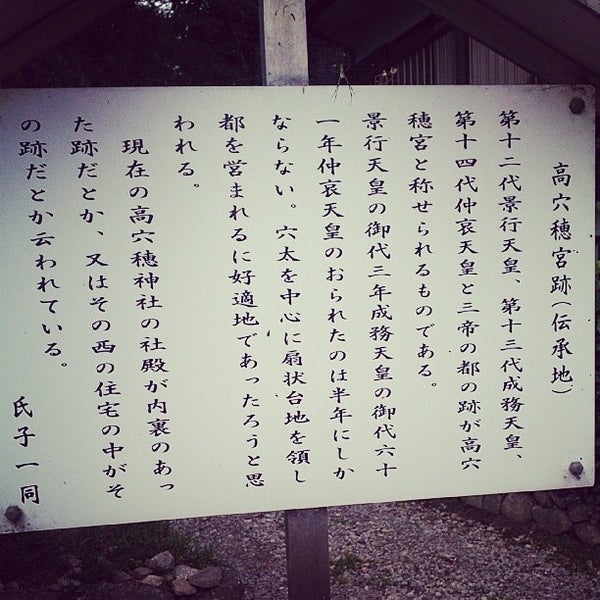 高穴穂宮跡（伝承地）
第十二代景行天皇、第十三代成務天皇、
第十四代仲哀天皇と三帝の都の跡が高穴
穂宮と称せられるものである。
景行天皇の御代三年成務天皇の御代六十
一年仲哀天皇のおられたのは半年にしか
ならない。穴太を中心に扇状台地を領し
都を営まれるに好適地であったろうと思
われる。
現在の高穴穂神社の社殿が内裏のあっ
た跡だとか、又はその西の住宅の中がそ
の跡だとか云われている。
氏子一同